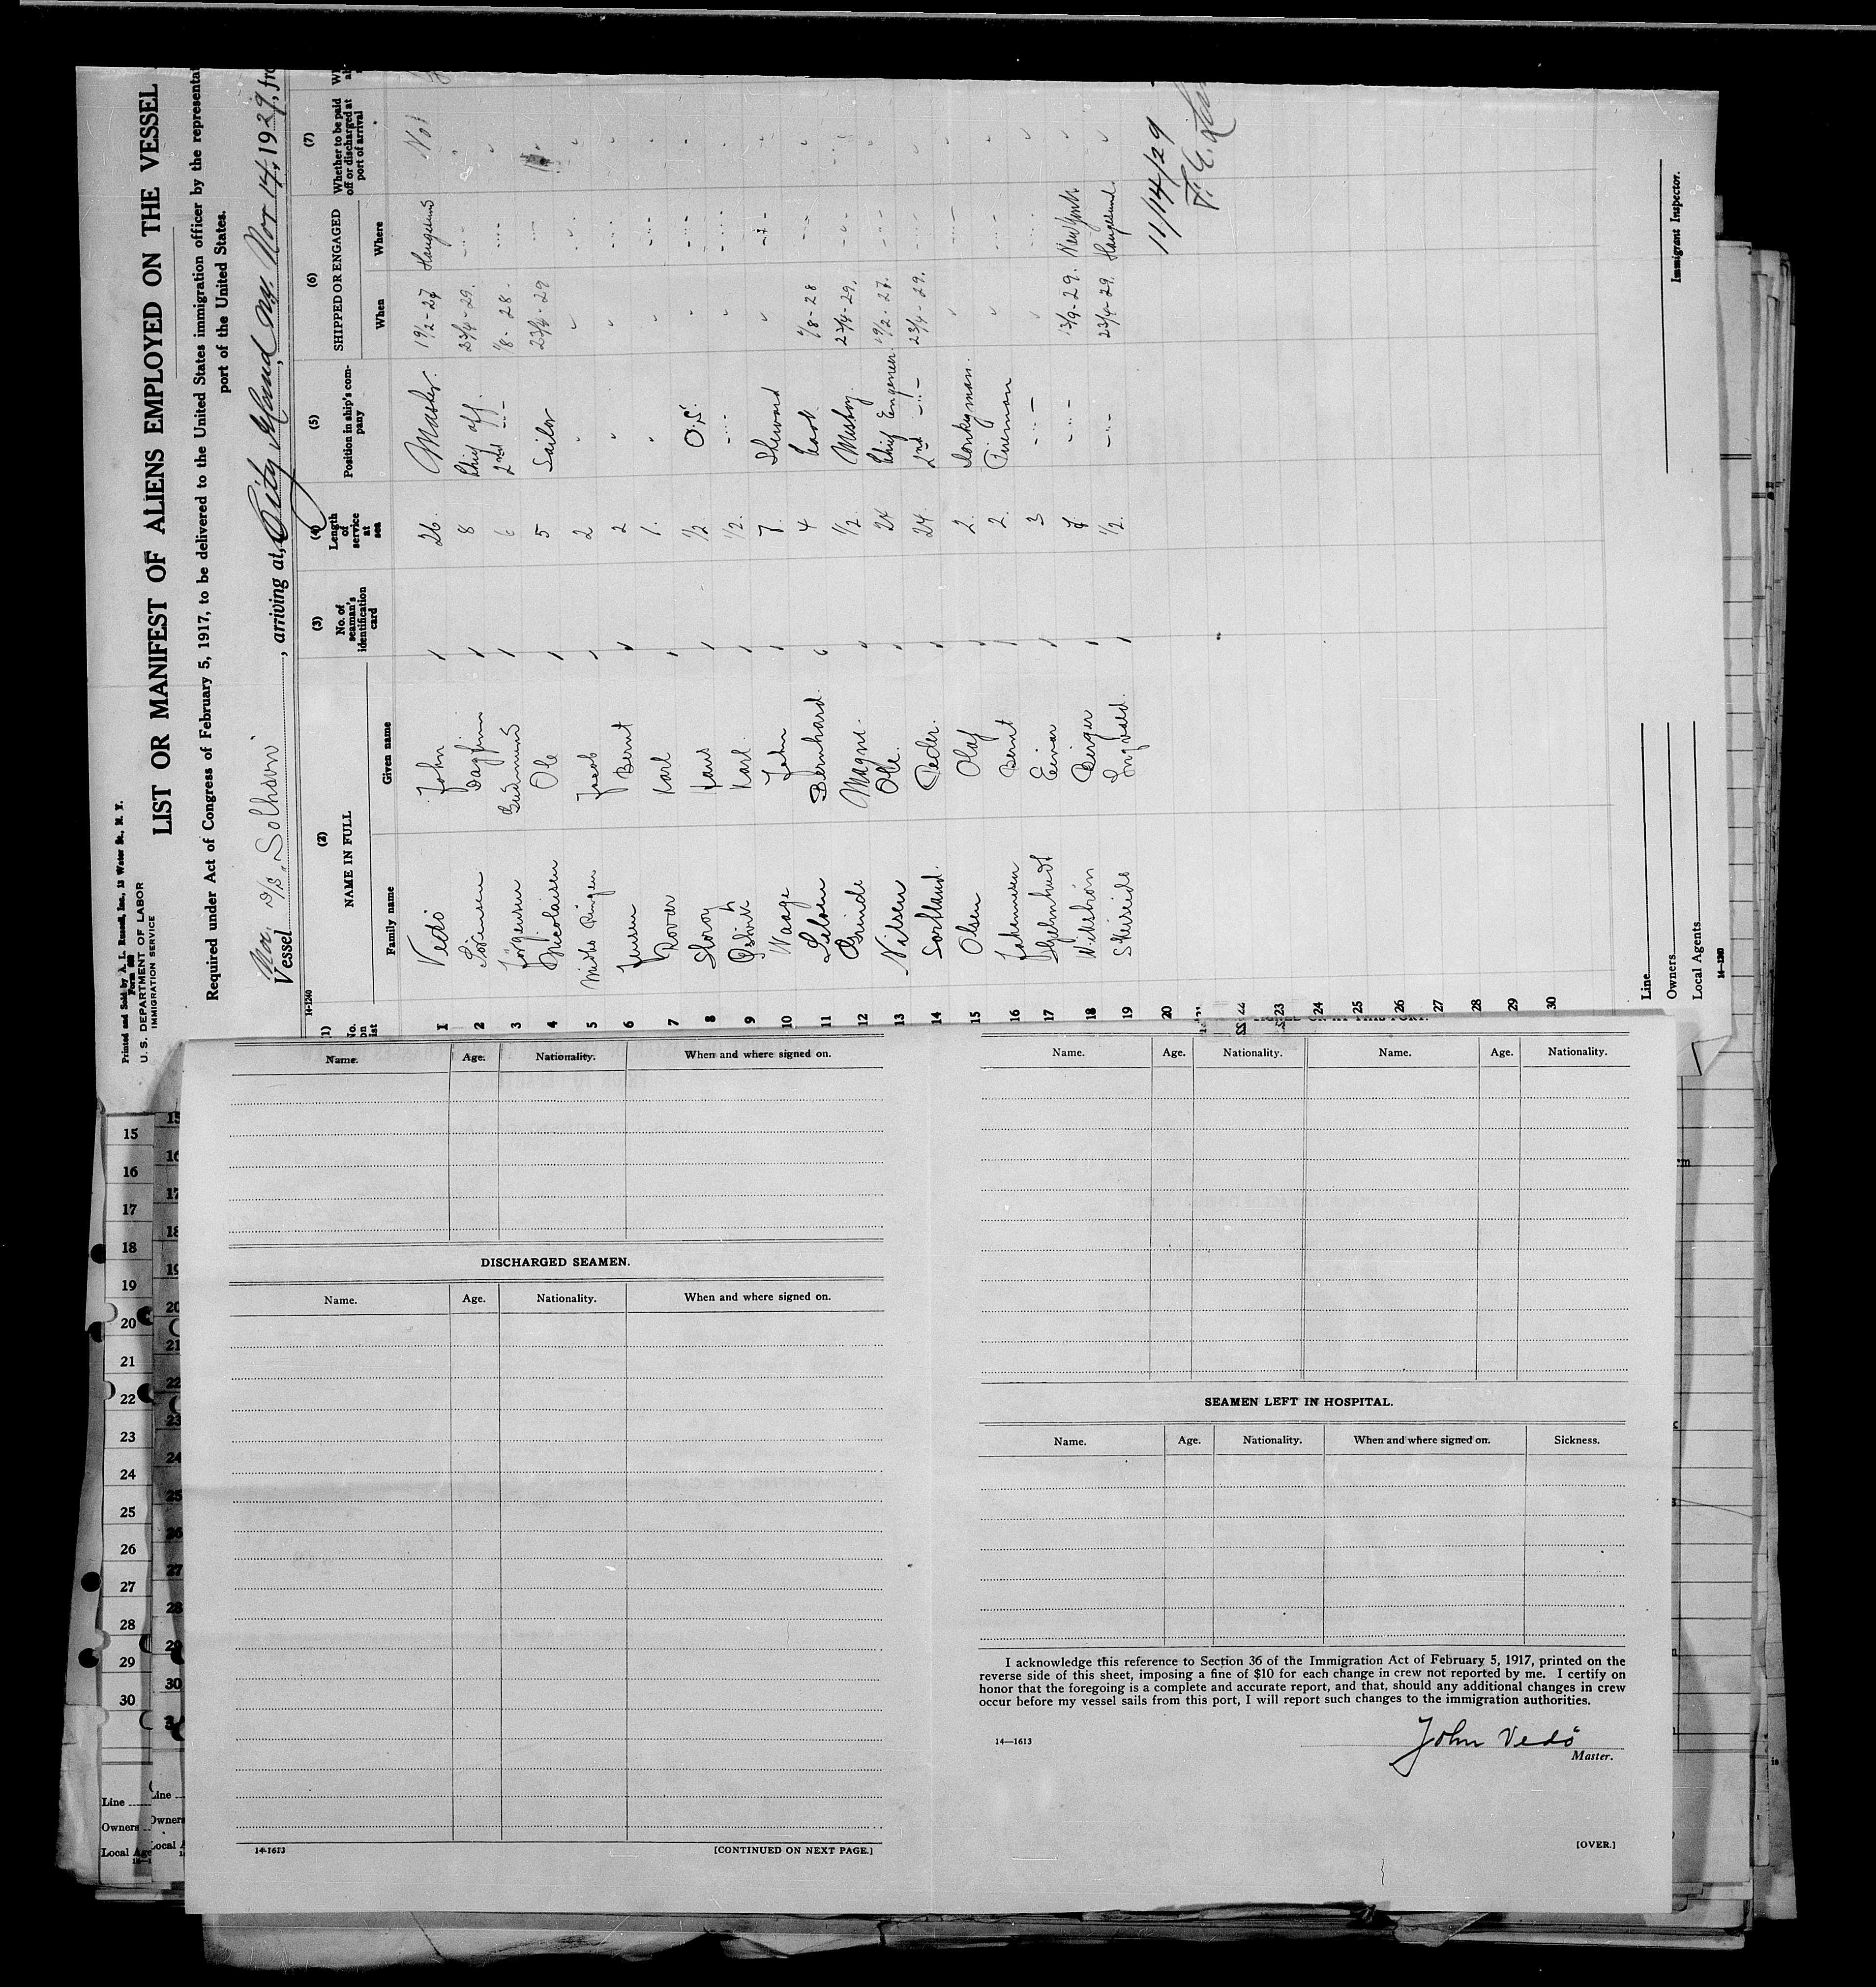 Printed and Sold by A. L. Russell, Inc., 13 Water St., N. Y.
U. S. DEPARTMENT OF LABOR
IMMIGRATION SERVICE
LIST OR MANIFEST OF ALIENS EMPLOYED ON THE VESSEL
Required under Act of Congress of February 5, 1917, to be delivered to the United States immigration officer by the representa
port of the United States.
Vessel D/S. Solhavn, arriving at City Island N.Y. Nov 14, 1929, fro
14-1240
(1) (2) (3) (4) (5) (6) (7)
NAME IN FULL No. of seaman's identification card Length of service at sea Position in ship's company SHIPPED OR ENGAGED Whether to be paid off or discharged at port of arrival
Family name Given name When Where
1 Vedö John 26 Master. 19/2-27 Haugesund Not
2 Sörensen Dagfinn 8 Chief off. 23/4-29. -"-
3 Jörgensen Gudmund 6 2nd -"- 1/8-28- -"-
4 Nicolaisen Ole 5 Sailor 23/4-29 -"-
5 Jacob 2 "
6 Jensen Bernt 2 "
7 Rovær Karl 1. "
8 Storöy Hans 1/2 O.S.
9 Karl. 1/2. -"-
10 Waage John 7. Steward
11 Bernhard. 4 Cook. 1/8-28
12 Grinde Magne. 1/2 Messboy. 23/4-29.
13 Nilsen Ole. 24 Chief Engeneer. 19/2-27.
14 Sortland. Peder. 24 2nd -"- 23/4-29.
15 Olsen Olaf 2. Donkeyman.
16 Johannesen Bernt 2. Fireman
17 Einar 3 -"-
18 Wikström Birger 7 -"- 13/9-29. New York.
19 Skeiseide Ingvald. 1/2. -"- 23/4-29. Haugesund.
20
22
23
24
25
26
27
28
29
30
11/14/29
Immigrant Inspector.
Line
Owners
Local Agents
14-1240
Name. Age. Nationality. When and where signed on.
DISCHARGED SEAMEN.
Name. Age. Nationality. When and where signed on.
14-1613
[CONTINUED ON NEXT PAGE.]
Name. Age. Nationality. Name. Age. Nationality.
SEAMEN LEFT IN HOSPITAL.
Name. Age. Nationality. When and where signed on. Sickness.
I acknowledge this reference to Section 36 of the Immigration Act of February 5, 1917, printed on the
reverse side of this sheet, imposing a fine of $10 for each change in crew not reported by me. I certify on
honor that the foregoing is a complete and accurate report, and that, should any additional changes in crew
occur before my vessel sails from this port, I will report such changes to the immigration authorities.
14—1613
John Vedö
Master.
[OVER.]
15
16
17
18
19
20
21
22
23
24
25
26
27
28
29
30
Line
Owners
Local Age
15
16
17
18
19
20
21
22
23
24
25
26
27
28
29
30
Line
Owners
Local A